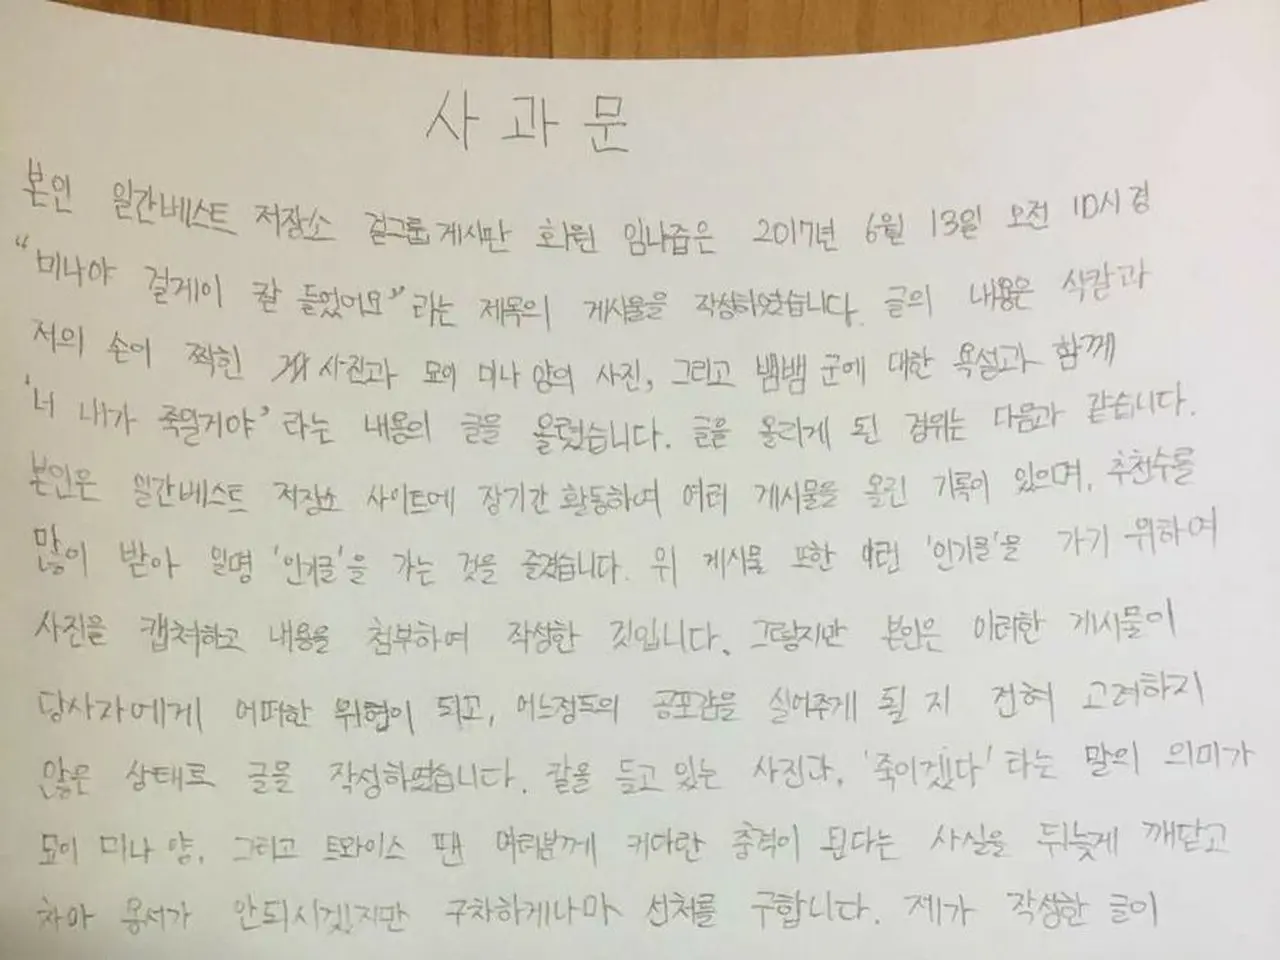 사과문
본인 일간베스트 저장소 걸그룹 게시판 회원 임나줍은 2017년 6월 13일 오전 10시 경
“미나야 걸게이 칼 들었어요”라는 제목의 게시물을 작성하였습니다. 글의 내용은 식칼과
저의 손이 찍힌 사진과 묘이 미나 양의 사진, 그리고 뱀뱀 군에 대한 욕설과 함께
'너 내가 죽일거야'라는 내용의 글을 올렸습니다. 글을 올리게 된 경위는 다음과 같습니다.
본인은 일간베스트 저장소 사이트에 장기간 활동하여 여러 게시물을 올린 기록이 있으며, 추천수를
많이 받아 일명 '인기글'을 가는 것을 즐겼습니다. 위 게시물 또한 이런 '인기글'을 가기 위하여
사진을 캡쳐하고 내용을 첨부하여 작성한 것입니다. 그렇지만 본인은 이러한 게시물이
당사자에게 어떠한 위협이 되고, 어느정도의 공포감을 실어주게 될 지 전혀 고려하지
않은 상태로 글을 작성하였습니다. 칼을 들고 있는 사진과, '죽이겠다'라는 말의 의미가
묘이 미나 양, 그리고 트와이스 팬 여러분께 커다란 충격이 된다는 사실을 뒤늦게 깨닫고
차마 용서가 안되시겠지만 구차하게나마 선처를 구합니다. 제가 작성한 글이